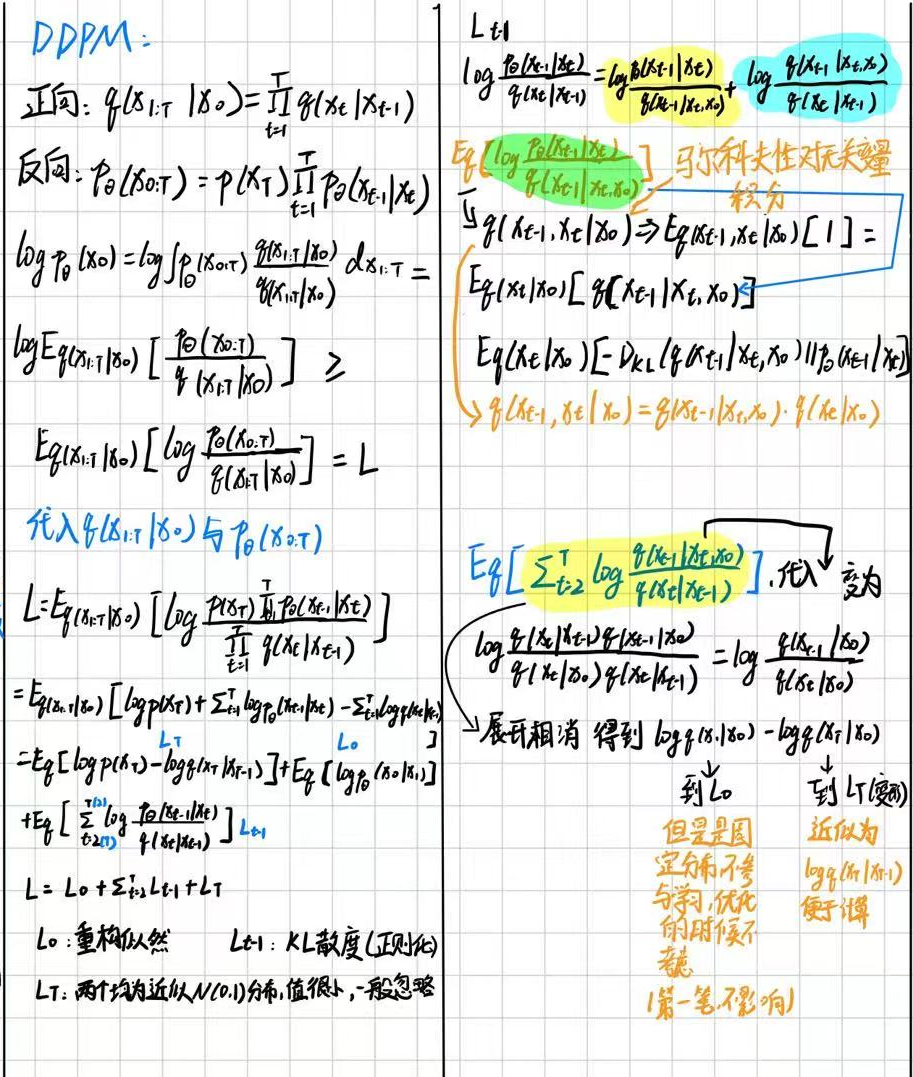 DDPM:
正向: q(x₁:T | x₀) = ∏ₜ₌₁ᵀ q(xₜ|xₜ₋₁)
反向: pθ(x₀:T) = p(xT) ∏ₜ₌₁ᵀ pθ(xₜ₋₁|xₜ)
log pθ(x₀) = log∫pθ(x₀:T) q(x₁:T|x₀)/q(x₁:T|x₀) dx₁:T =
log Eq(x₁:T|x₀) [ pθ(x₀:T) / q(x₁:T|x₀) ] ≥
Eq(x₁:T|x₀) [ log pθ(x₀:T) / q(x₁:T|x₀) ] = L
代入 q(x₁:T|x₀) 与 pθ(x₀:T)
L = Eq(x₁:T|x₀) [ log p(xT) ∏ₜ₌₁ᵀ pθ(xₜ₋₁|xₜ) / ∏ₜ₌₁ᵀ q(xₜ|xₜ₋₁) ]
= Eq(x₁:T|x₀) [ log p(xT) + Σₜ₌₁ᵀ log pθ(xₜ₋₁|xₜ) − Σₜ₌₁ᵀ log q(xₜ|xₜ₋₁) ]
LT L₀
= Eq[ log p(xT) − log q(xT|xT₋₁) ] + Eq[ log pθ(x₀|x₁) ]
+ Eq [ Σₜ₌₂ᵀ log pθ(xₜ₋₁|xₜ) / q(xₜ|xₜ₋₁) ] Lₜ₋₁
L = L₀ + Σₜ₌₂ᵀ Lₜ₋₁ + LT
L₀: 重构似然 Lₜ₋₁: KL散度(正则化)
LT: 两个均为近似N(0,1)分布,值很小,一般忽略
Lₜ₋₁
log pθ(xₜ₋₁|xₜ) / q(xₜ|xₜ₋₁) = log pθ(xₜ₋₁|xₜ) / q(xₜ₋₁|xₜ,x₀) + log q(xₜ₋₁|xₜ,x₀) / q(xₜ|xₜ₋₁)
Eq[ log pθ(xₜ₋₁|xₜ) / q(xₜ₋₁|xₜ,x₀) ] 马尔科夫性对无关变量
积分
q(xₜ₋₁,xₜ|x₀) ⇒ Eq(xₜ₋₁,xₜ|x₀) [ 1 ] =
Eq(xₜ|x₀) [ q[xₜ₋₁|xₜ,x₀) ]
Eq(xₜ|x₀) [ −DKL(q(xₜ₋₁|xₜ,x₀) || pθ(xₜ₋₁|xₜ) ]
q(xₜ₋₁,xₜ|x₀) = q(xₜ₋₁|xₜ,x₀) · q(xₜ|x₀)
Eq[ Σₜ₌₂ᵀ log q(xₜ₋₁|xₜ,x₀) / q(xₜ|xₜ₋₁) ], 代入 变为
log q(xₜ|xₜ₋₁) q(xₜ₋₁|x₀) / q(xₜ|x₀) q(xₜ|xₜ₋₁) = log q(xₜ₋₁|x₀) / q(xₜ|x₀)
展开相消 得到 log q(x₁|x₀) − log q(xT|x₀)
到L₀ 到LT(变形)
但是是固
定分布,不参
与学习,优化
的时候不
考虑
(第一笔,不影响)
近似为
log q(xT|xT₋₁)
便于计算